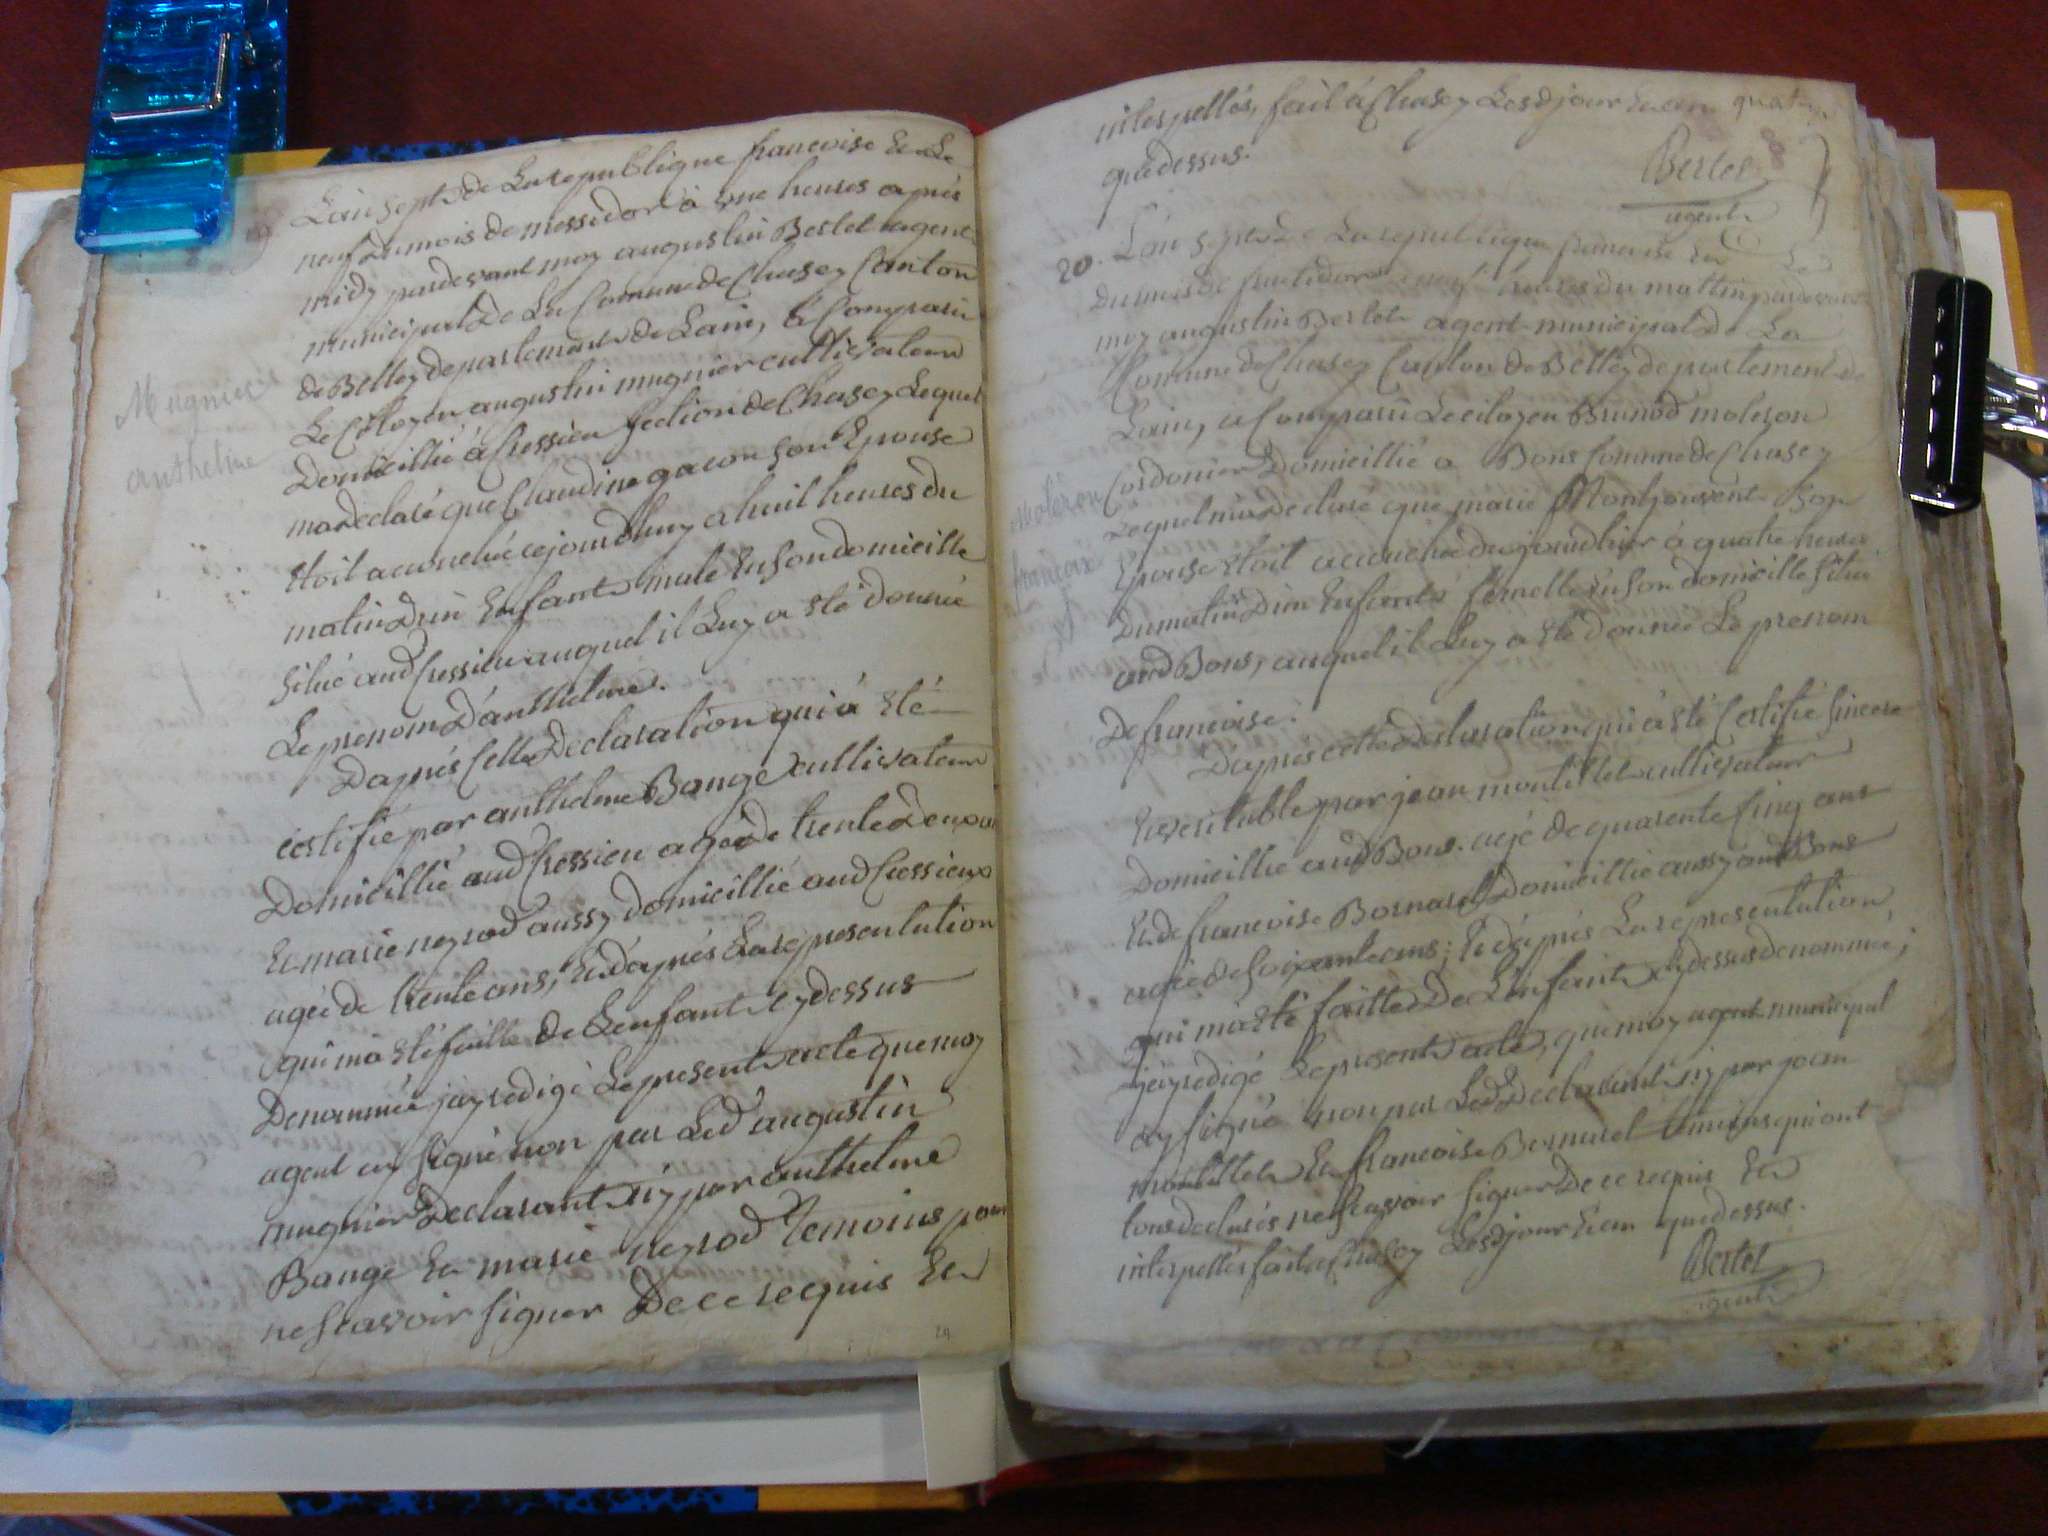 L'an sept de La republique francoise Et Le
neuf du mois de messidor à une heures après
midy pardevant moy augustin Bertet agent
municipal de La Comune de Chasey Canton
de Belley departement de Lain, à Comparu
Le Citoyen augustin mugnier cultivateur
Domicillié à Cressieu section de Chasey Lequel
ma declaré que Claudine gacon son Epouse
Etoit acouchée cejourdhuy a huit heures du
matin D'un Enfant male En son domicille
situé aud Cressieu auquel il Luy a eté donné
Le prenom D'anthelme.
Mugnier
anthelme
D'après Cette Declaration qui à eté
certifié par anthelme Bange cultivateur
Domicillié aud Cressieu agé de trente Deux ans
Et marie neyrod aussy domicillié aud Cressieux
agée de trente ans, Et d'après La representation
qui m'a eté faitte de Lenfant cy dessus
Denommée jay redigé Le present acte que moy
agent ay signé non par Led augustin
mugnier Declarant ny par anthelme
Bange Et marie neyrod temoins pour
ne scavoir signer De ce requis Et
29
interpellés, fait à Chasey Lesd jour Et an
que dessus.
Bertet
agent
20. L'an sept de La republique francoise Et Le
du mois de fructidor à neuf heures du mattin pardevant
moy augustin Bertet agent municipal de La
Comune de Chasey Canton de Belley departement de
Lain, a Comparu Le citoyen Brunod moleron
Cordonier Domicillié a Bons Comune de Chasey
Lequel m'a Declaré que marie Montjouvent son
Epouse Etoit accouchée du jourdhier à quatre heures
Du matin D'un Enfant femelle En son domicille situé
aud Bons, auquel il Luy a eté donnée Le prenom
De francoise.
Moleron
francoise
D'après cette declaration qui à eté Certifié sincere
Et veritable par jean montillet cultivateur
Domicillié aud Bons. agé de quarente Cinq ans
Et de francoise Bornarel Domicillié aussy aud Bons
agée de soixante ans; Et d'après La representation
qui m'a eté faitte De L'enfant cy dessus denommée;
jay redigé Le present acte, que moy agent municipal
ay signé non par Led Declarant ny par jean
montillet Et francoise Bornarel temoins qui ont
tous declarés ne scavoir signer De ce requis Et
interpellés fait a Chasey Lesd jour Et an que dessus.
Bertet
agent